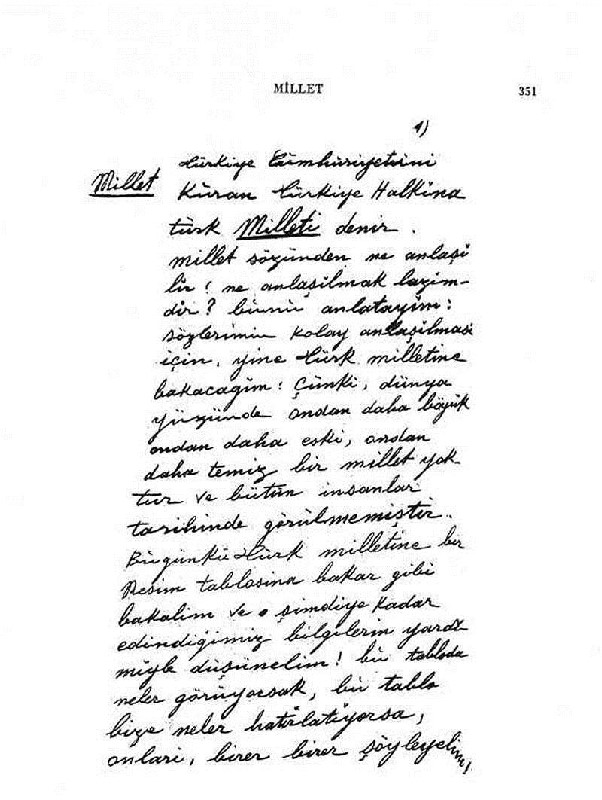 MİLLET
351
1)
Millet
türkiye Cümhüriyetini
Küran türkiye Halkina
türk Milleti denir.
millet sözünden ne anlaşi
lir! ne anlaşilmak lazim-
dir? bünü anlatayim:
sözlerimin kolay anlaşilmasi
için, yine türk milletine
bakacağim! Çünki, dünya
yüzünde ondan daha böyük
ondan daha eski, ondan
daha temiz bir millet yok
tur ve bütün insanlar
tarihinde görülmemiştir..
Bügünkü türk milletine bir
Resim tablosina bakar gibi
bakalim ve o şimdiye kadar
edindiğimiz bilgilerin yardı
miyle düşünelim! bü tabloda
neler görüyorsak, bü tablo
bize neler hatırlatiyorsa,
onlari, birer birer söyleyelim,